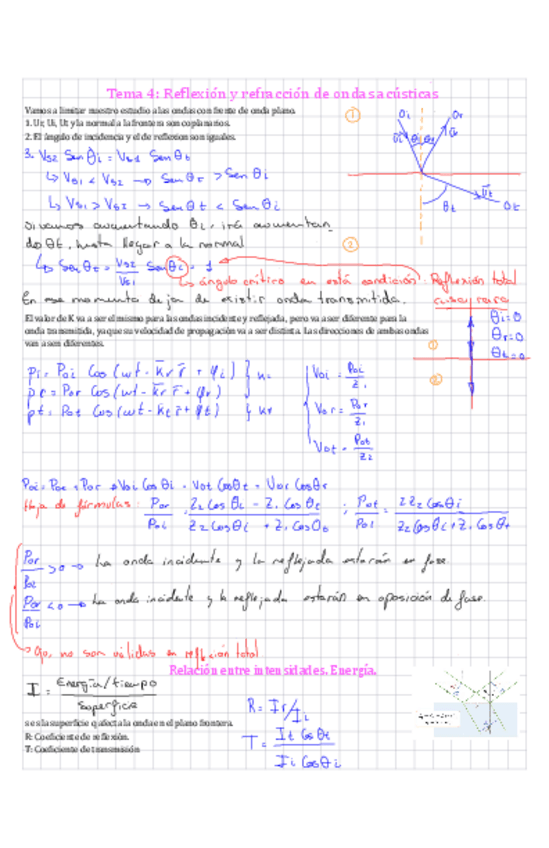 Tema 4: Reflexión y refracción de ondas acústicas
Vamos a limitar nuestro estudio a las ondas con frente de onda plano.
1. Ur, Ui, Ut y la normal a la frontera son coplanarios.
2. El ángulo de incidencia y el de reflexion son iguales.
3. Vs2 Sen θi = Vs1 Sen θt
↳ Vs1 < Vs2 → Sen θt > Sen θi
↳ Vs1 > Vs2 → Sen θt < Sen θi
Si vamos aumentando θi, irá aumentan
do θt, hasta llegar a la normal
↳ Sen θt = Vs2/Vs1 Sen θi = 1
↳ ángulo crítico en está condición: Reflexión total
En ese momento dejan de existir onda transmitida.
caso raro
θi=0
θr=0
θt=0
El valor de K va a ser el mismo para las ondas incidente y reflejada, pero va a ser diferente para la
onda transmitida, ya que su velocidad de propagación va a ser distinta. Las direcciones de ambas ondas
van a ser diferentes.
pi = Poi Cos (wt - kr r + φi)
pr = Por Cos (wt - kr r + φr)
pt = Pot Cos (wt - kt r + φt)
Voi = Poi/Z1
Vor = Por/Z1
Vot = Pot/Z2
Hoja de fórmulas: Por/Poi = Z2 Cos θi - Z1 Cos θt / Z2 Cos θi + Z1 Cos θt ; Pot/Poi = 2Z2 Cos θi / Z2 Cos θi + Z1 Cos θt
Por/Poi > 0 → La onda incidente y la reflejada estarán en fase.
Por/Poi < 0 → La onda incidente y la reflejada estarán en oposición de fase.
Ojo, no son válidas en reflexión total
Relación entre intensidades. Energía.
I = Energía/tiempo / Superficie
s es la superficie q afecta la onda en el plano frontera.
R: Coeficiente de reflexión.
T: Coeficiente de transmisión
R = Ir/Ii
T = It Cos θt / Ii Cos θi